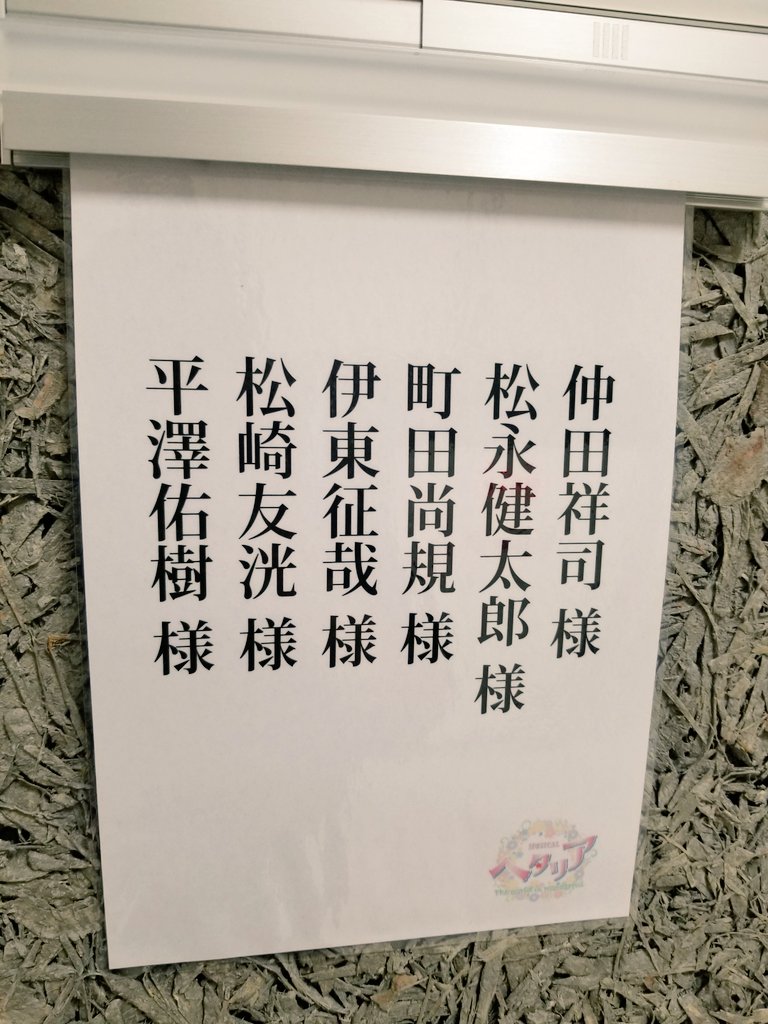 仲田祥司 様
松永健太郎 様
町田尚規 様
伊東征哉 様
松崎友洸 様
平澤佑樹 様
MUSICAL
ヘタリア
The world is wonderful